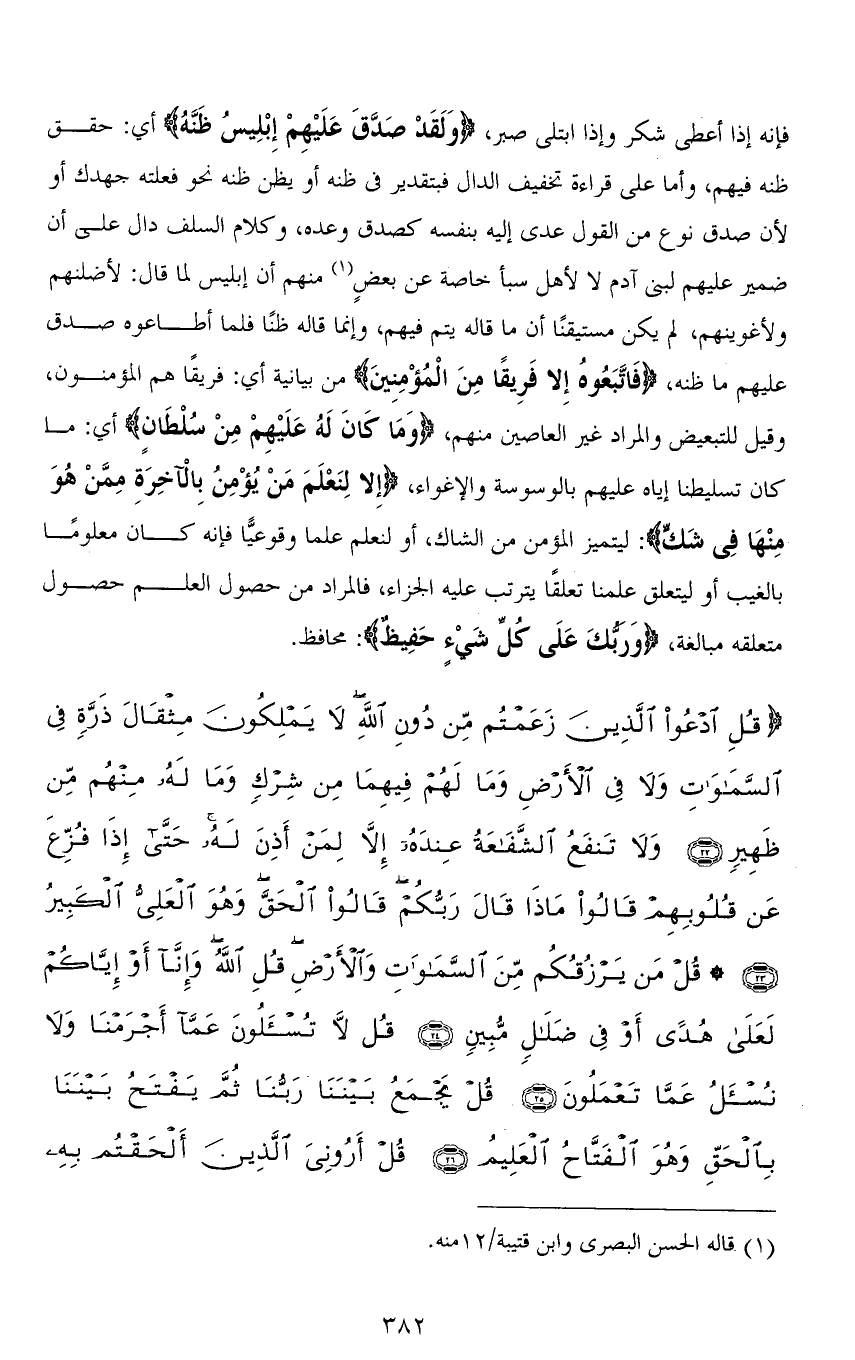 فإنه إذا أعطى شكر وإذا ابتلى صبر، ﴿وَلَقَدْ صَدَّقَ عَلَيْهِمْ إِبْلِيسُ ظَنَّهُ﴾ أي: حقق
ظنه فيهم، وأما على قراءة تخفيف الدال فبتقدير فى ظنه أو يظن ظنه نحو فعلته جهدك أو
لأن صدق نوع من القول عدى إليه بنفسه كصدق وعده، وكلام السلف دال على أن
ضمير عليهم لبنى آدم لا لأهل سبأ خاصة عن بعضٍ(١) منهم أن إبليس لما قال: لأضلنهم
ولأغوينهم، لم يكن مستيقنًا أن ما قاله يتم فيهم، وإنما قاله ظنًا فلما أطاعوه صدق
عليهم ما ظنه، ﴿فَاتَّبَعُوهُ إِلا فَرِيقًا مِنَ الْمُؤْمِنِينَ﴾ من بيانية أي: فريقًا هم المؤمنون،
وقيل للتبعيض والمراد غير العاصين منهم، ﴿وَمَا كَانَ لَهُ عَلَيْهِمْ مِنْ سُلْطَانٍ﴾ أي: ما
كان تسليطنا إياه عليهم بالوسوسة والإغواء، ﴿إِلا لِنَعْلَمَ مَنْ يُؤْمِنُ بِالْآخِرَةِ مِمَّنْ هُوَ
مِنْهَا فِي شَكٍّ﴾: ليتميز المؤمن من الشاك، أو لنعلم علما وقوعيًّا فإنه كان معلومًا
بالغيب أو ليتعلق علمنا تعلقًا يترتب عليه الجزاء، فالمراد من حصول العلم حصول
متعلقه مبالغة، ﴿وَرَبُّكَ عَلَى كُلِّ شَيْءٍ حَفِيظٌ﴾: محافظ.
﴿قُلِ ٱدْعُوا۟ ٱلَّذِينَ زَعَمْتُم مِّن دُونِ ٱللَّهِۖ لَا يَمْلِكُونَ مِثْقَالَ ذَرَّةٍ فِى
ٱلسَّمَـٰوَٰتِ وَلَا فِى ٱلْأَرْضِ وَمَا لَهُمْ فِيهِمَا مِن شِرْكٍ وَمَا لَهُۥ مِنْهُم مِّن
ظَهِيرٍ ٢٢ وَلَا تَنفَعُ ٱلشَّفَـٰعَةُ عِندَهُۥٓ إِلَّا لِمَنْ أَذِنَ لَهُۥۚ حَتَّىٰٓ إِذَا فُزِّعَ
عَن قُلُوبِهِمْ قَالُوا۟ مَاذَا قَالَ رَبُّكُمْۖ قَالُوا۟ ٱلْحَقَّۖ وَهُوَ ٱلْعَلِىُّ ٱلْكَبِيرُ
٢٣ * قُلْ مَن يَرْزُقُكُم مِّنَ ٱلسَّمَـٰوَٰتِ وَٱلْأَرْضِۖ قُلِ ٱللَّهُۖ وَإِنَّآ أَوْ إِيَّاكُمْ
لَعَلَىٰ هُدًى أَوْ فِى ضَلَـٰلٍ مُّبِينٍ ٢٤ قُل لَّا تُسْـَٔلُونَ عَمَّآ أَجْرَمْنَا وَلَا
نُسْـَٔلُ عَمَّا تَعْمَلُونَ ٢٥ قُلْ يَجْمَعُ بَيْنَنَا رَبُّنَا ثُمَّ يَفْتَحُ بَيْنَنَا
بِٱلْحَقِّ وَهُوَ ٱلْفَتَّاحُ ٱلْعَلِيمُ ٢٦ قُلْ أَرُونِىَ ٱلَّذِينَ أَلْحَقْتُم بِهِۦ
(١) قاله الحسن البصرى وابن قتيبة/١٢منه.
٣٨٢